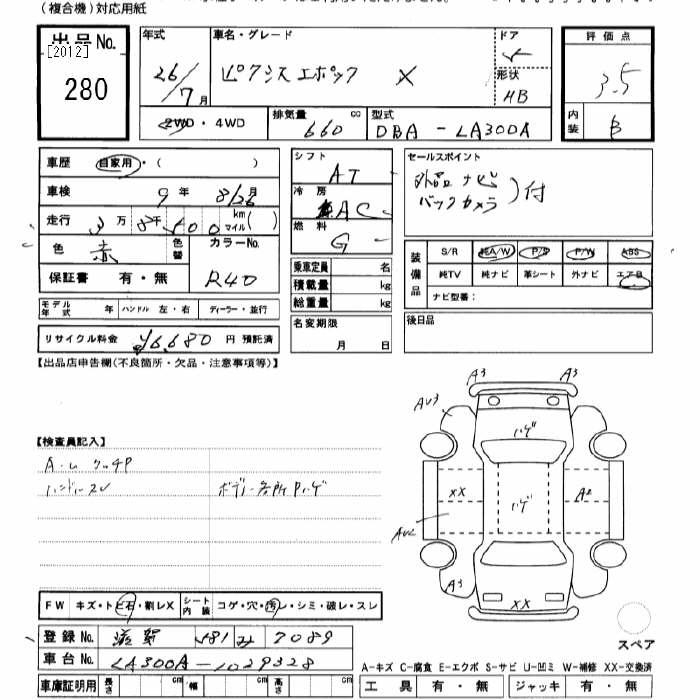 (複合機)対応用紙
出品No.
[2012]
280
年式
26/7月
車名・グレード
ピクシスエポック X
ドア
5
形状
HB
評価点
3.5
内装
B
2WD・4WD
排気量
660 cc
型式
DBA-LA300A
車歴
自家用・( )
車検
9年 8/26月
走行
3万8千500 km マイル( )
色
赤
色替
カラーNo.
R40
保証書 有・無
モデル年式 年 ハンドル 左・右 ディーラー・並行
リサイクル料金 ¥6,680円 預託済
シフト
AT
冷房
AC
燃料
G
乗車定員 名
積載量 kg
総重量 kg
名変期限
月 日
セールスポイント
外品ナビ
バックカメラ )付
装備品
S/R 純A/W P/S P/W ABS
純TV 純ナビ 革シート 外ナビ エアB
ナビ型番:
後日品
【出品店申告欄(不良箇所・欠品・注意事項等)】
【検査員記入】
ハンドルスレ
ボデー各所Pハゲ
FW キズ・トビ石・割レX
シート内装 コゲ・穴・汚レ・シミ・破レ・スレ
登録No. 滋賀 581 み 7089
車台No. LA300A-1029328
車庫証明用 長さ cm 幅 cm 高さ cm
A3 A3
AU3
ハゲ
XX ハゲ A2
AU2
A3
XX
スペア
A-キズ C-腐食 E-エクボ S-サビ U-凹ミ W-補修 XX-交換済
工具 有・無 ジャッキ 有・無